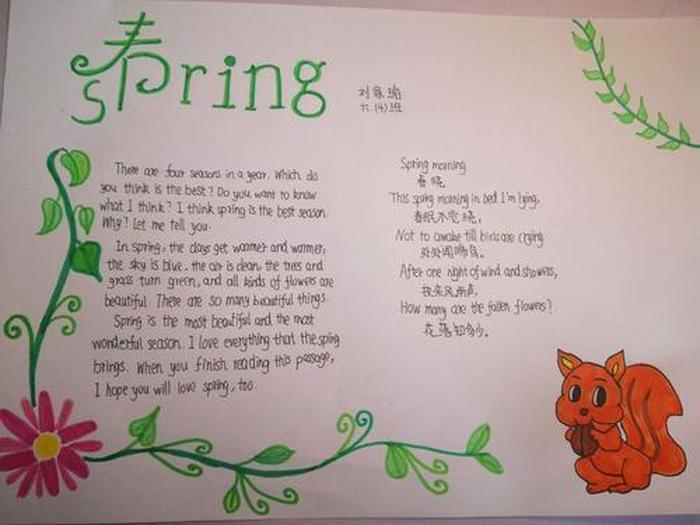 春Spring
刘 瑜
六(4)班
There are four seasons in a year. Which do
you think is the best? Do you want to know
what I think? I think spring is the best season.
Why? Let me tell you.
In spring, the days get warmer and warmer,
the sky is blue, the air is clean, the trees and
grass turn green, and all kinds of flowers are
beautiful. There are so many beautiful things.
Spring is the most beautiful and the most
wonderful season. I love everything that the spring
brings. When you finish reading this passage,
I hope you will love spring, too.
Spring morning
春晓
This spring morning in bed I'm lying,
春眠不觉晓,
Not to awake till birds are crying.
处处闻啼鸟。
After one night of wind and showers,
夜来风雨声,
How many are the fallen flowers?
花落知多少。